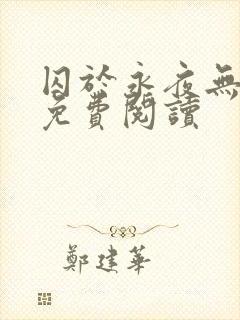 囚於永夜無
免費閱讀
鄭建華